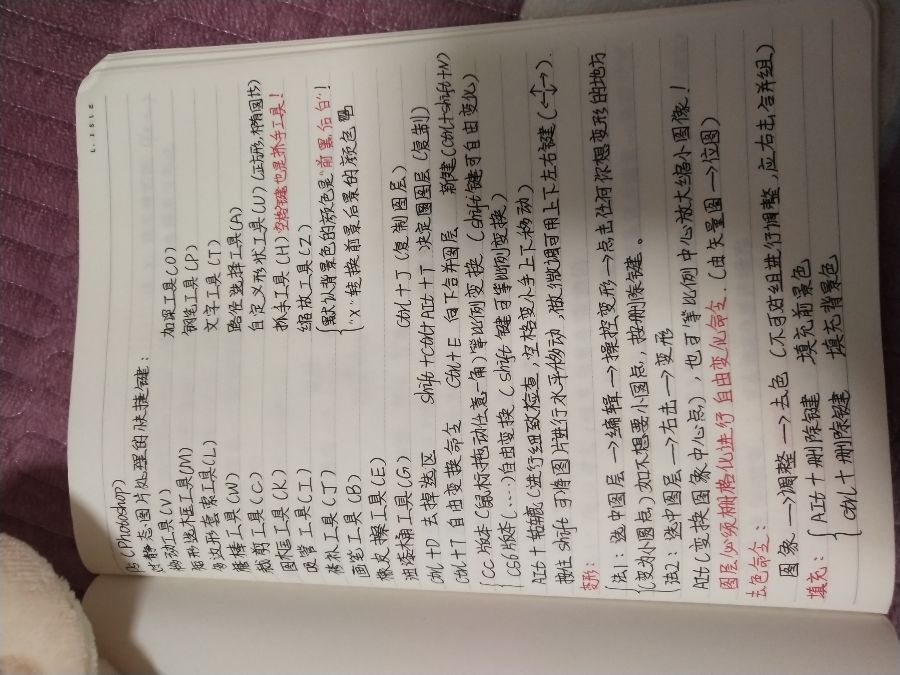 PS (Photoshop)
过静态图片处理的快捷键：
移动工具(V) 加深工具(O)
矩形选框工具(M) 钢笔工具(P)
多边形套索工具(L) 文字工具(T)
魔棒工具(W) 路径选择工具(A)
裁剪工具(C) 自定义形状工具(U)(正方形,椭圆书)
图框工具(K) 抓手工具(H) 空格键也是抓手工具！
吸管工具(I) 缩放工具(Z)
修补工具(J) 默认背景色的颜色是“前黑后白”！
画笔工具(B) “X”转换前景后景的颜色
橡皮擦工具(E)
油漆桶工具(G) Ctrl+J(复制图层)
Ctrl+D 去掉选区 Shift+Ctrl+Alt+T 决定图图层(复制)
Ctrl+T 自由变换命令 Ctrl+E 向下合并图层 新建(Ctrl+shift+N)
CC版本(鼠标拖动任意一角)等比例变换(shift键可自由变化)
CS6版本(...)自由变换(shift键可等比例变换)
Alt+轱辘(进行细致检查,空格变小手上下移动)
按住shift可将图片进行水平移动,做微调可用上下左右键
变形：
法1：选中图层→编辑→操控变形→点击任何你想变形的地方
(变为小圆点)如不想要小圆点,按删除键。
法2：选中图层→右击→变形
Alt(变换图象中心点),也可等比例中心放大缩小图像！
图层必须栅格化进行自由变化命令.(由矢量图→位图)
去色命令：
图象→调整→去色(不可对组进行调整,应右击合并组)
填充： Alt+删除键 填充前景色
Ctrl+删除键 填充背景色